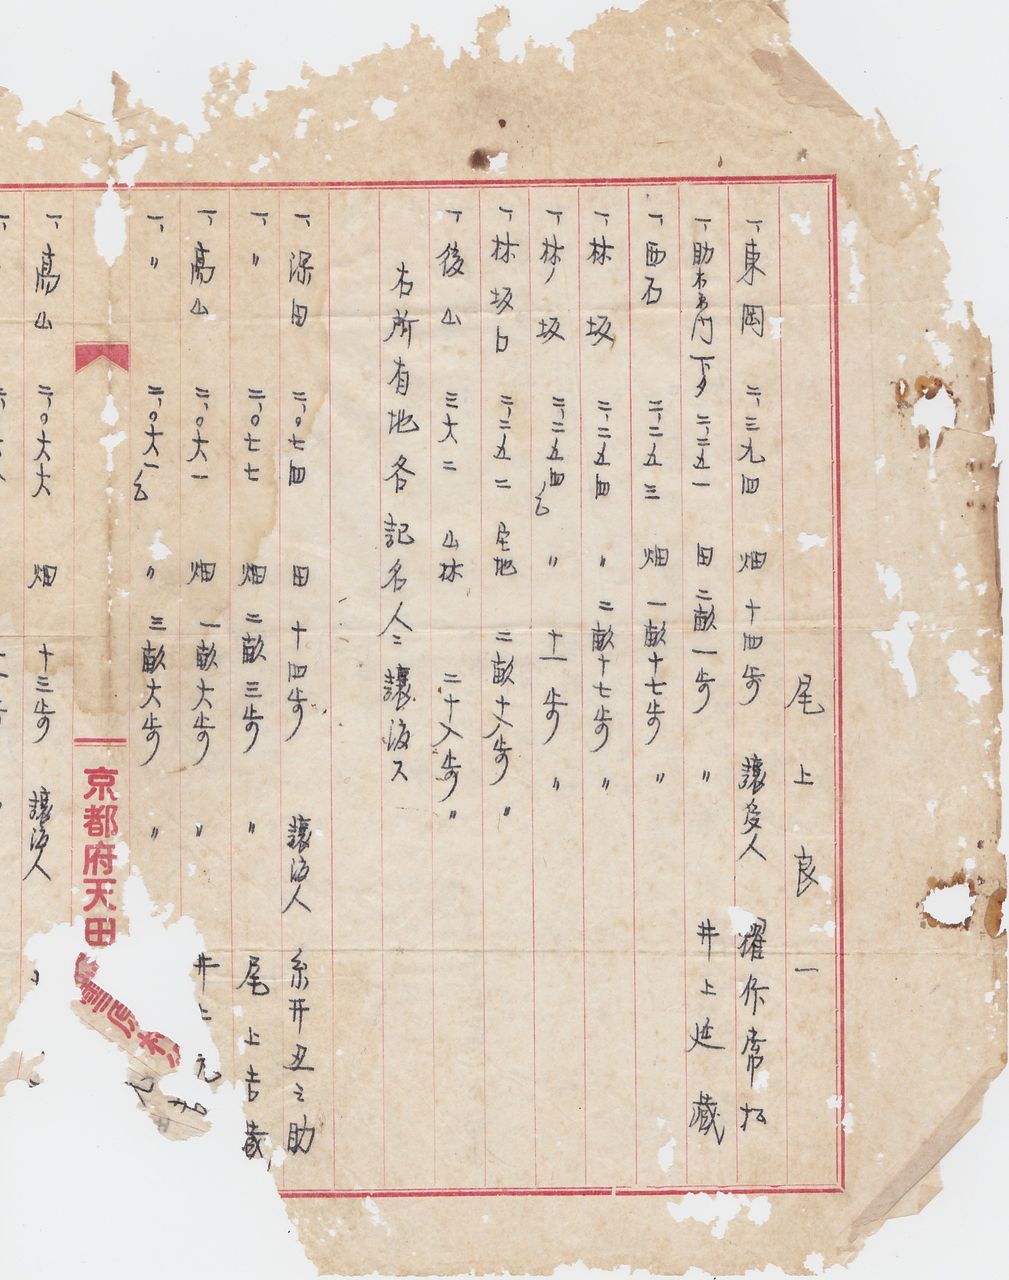 尾上良一
一、東岡 二、三九四 畑 十四歩 譲受人 常松
一、助右衛門下夕 二、二五一 田 二畝一歩 〃 井上延蔵
一、西石 二、二五三 畑 一畝十七歩 〃
一、林坂 二、二五四 〃 二畝十七歩 〃
一、林ノ坂 二、二五四ノ乙 〃 十一歩 〃
一、林坂口 二、二五二 宅地 二畝十八歩 〃
一、後山 三六二 山林 二十八歩 〃
右所有地各記名人ニ譲渡ス
一、深田 二、〇七四 田 十四歩 譲渡人 糸井丑之助
一、〃 二、〇七七 畑 二畝三歩 〃 尾上吉蔵
一、高山 二、〇六一 畑 一畝六歩 〃 井上元
一、〃 二、〇六一ノ乙 〃 三畝六歩 〃
京都府天田
一、高山 二、〇六六 畑 十三歩 譲渡人